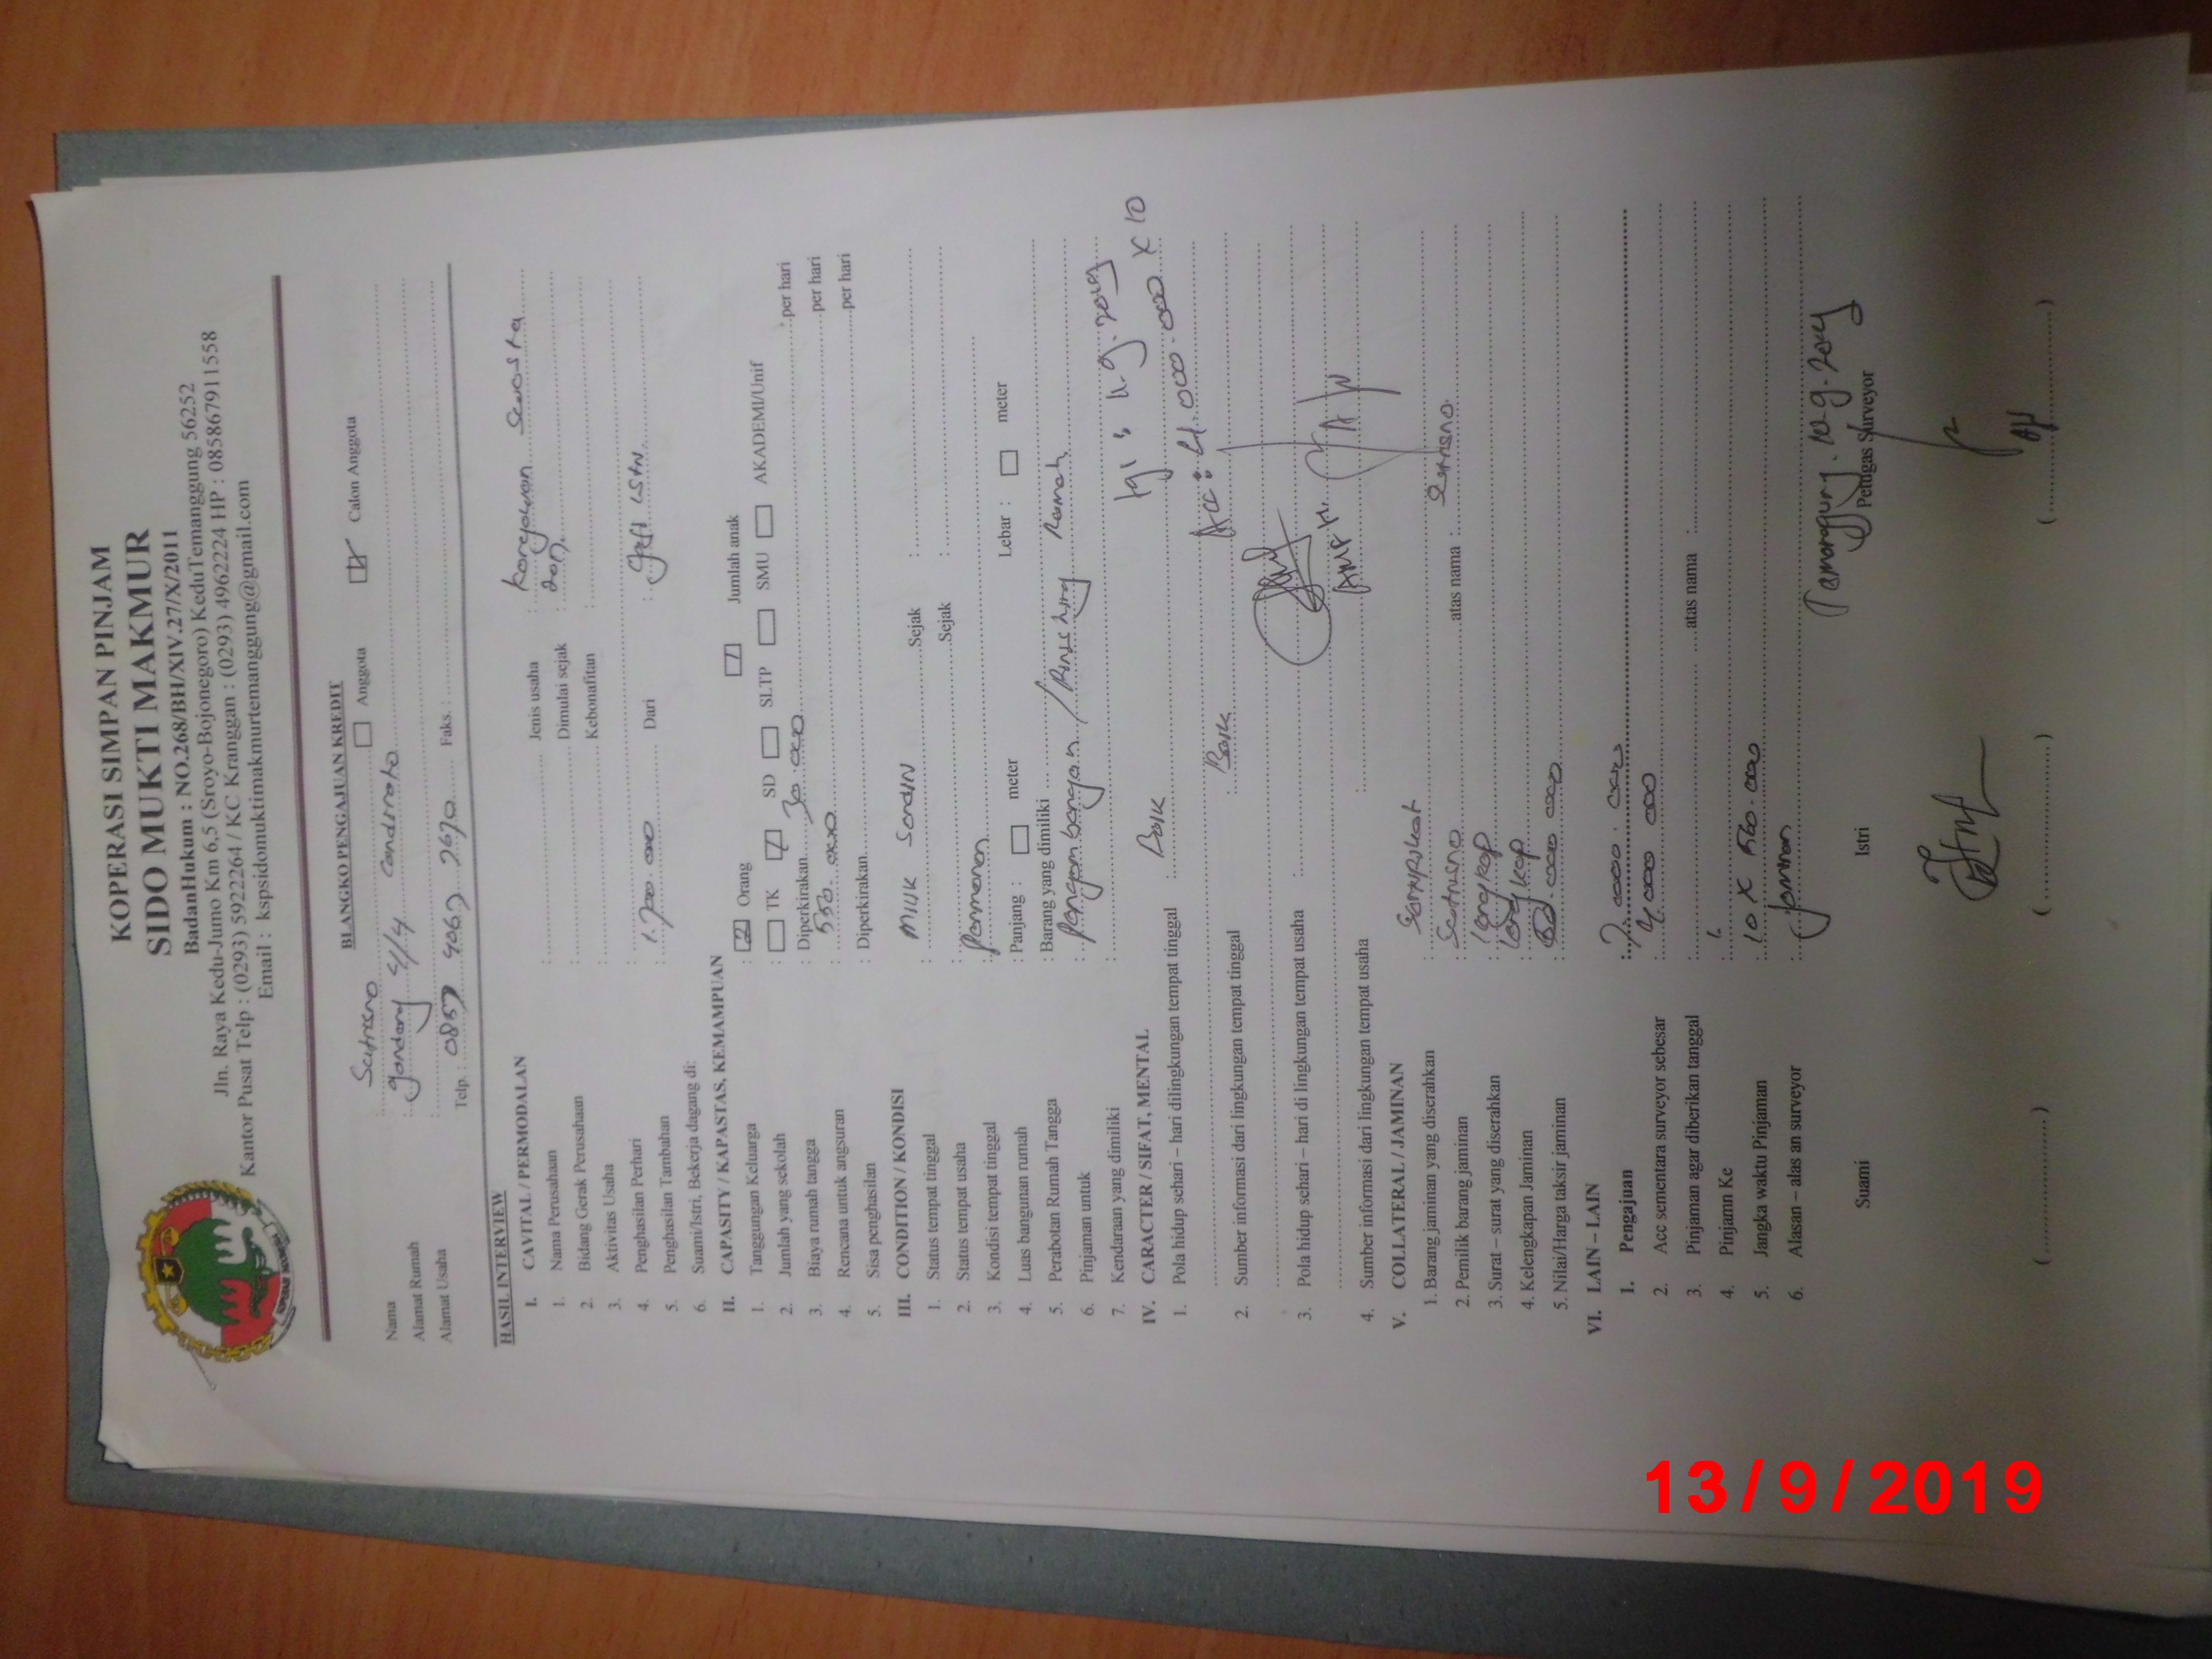 KOPERASI SIMPAN PINJAM
SIDO MUKTI MAKMUR
BadanHukum : NO.268/BH/XIV.27/X/2011
Jln. Raya Kedu-Jumo Km 6,5 (Sroyo-Bojonegoro) KeduTemanggung 56252
Kantor Pusat Telp : (0293) 5922264 / KC Krangan : (0293) 4962224 HP : 085867911558
Email : kspsidomuktimakmurtemanggung@gmail.com
BLANGKO PENGAJUAN KREDIT
Anggota Calon Anggota
Nama : Sutrisno
Alamat Rumah : 4/4 Candiroto
Alamat Usaha
Telp. : 0857 4067 2670 Faks. :
HASIL INTERVIEW
I. CAVITAL / PERMODALAN
1. Nama Perusahaan : Jenis usaha : Karyawan Swasta
2. Bidang Gerak Perusahaan : Dimulai sejak : 2017
3. Aktivitas Usaha : Kebonafitan :
4. Penghasilan Perhari : 1.700.000 Dari :
5. Penghasilan Tambahan
6. Suami/Istri, Bekerja dagang di:
II. CAPASITY / KAPASTAS, KEMAMPUAN
1. Tanggungan Keluarga : 2 Orang 1 Jumlah anak
2. Jumlah yang sekolah : TK SD SLTP SMU AKADEMI/Unif
3. Biaya rumah tangga : Diperkirakan 30.000 per hari
4. Rencana untuk angsuran : 550.000 per hari
5. Sisa penghasilan : Diperkirakan per hari
III. CONDITION / KONDISI
1. Status tempat tinggal : Milik Sendiri Sejak :
2. Status tempat usaha : Sejak :
3. Kondisi tempat tinggal : Permanen
4. Luas bangunan rumah : Panjang : meter Lebar : meter
5. Perabotan Rumah Tangga : Barang yang dimiliki
6. Pinjaman untuk : Rumah
7. Kendaraan yang dimiliki :
IV. CARACTER / SIFAT, MENTAL
1. Pola hidup sehari – hari dilingkungan tempat tinggal : Baik
Acc : 4.000.000 X 10
2. Sumber informasi dari lingkungan tempat tinggal : Baik
3. Pola hidup sehari – hari di lingkungan tempat usaha :
4. Sumber informasi dari lingkungan tempat usaha :
V. COLLATERAL / JAMINAN
1. Barang jaminan yang diserahkan : Sertipikat
2. Pemilik barang jaminan : Sutrisno atas nama : Sutrisno
3. Surat – surat yang diserahkan : lengkap
4. Kelengkapan Jaminan : lengkap
5. Nilai/Harga taksir jaminan : 50.000.000
VI. LAIN – LAIN
1. Pengajuan : 7.000.000
2. Acc sementara surveyor sebesar : 4 000 000
3. Pinjaman agar diberikan tanggal : atas nama :
4. Pinjamn Ke : 1
5. Jangka waktu Pinjaman : 10 X 560.000
6. Alasan – alas an surveyor : jaminan
Suami Istri Petugas Surveyor
(..............) (..............) (..............)
13/9/2019